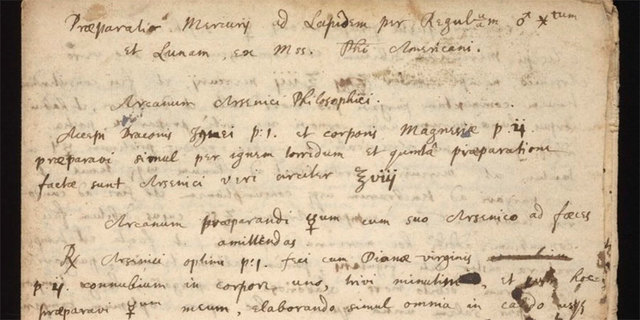 Præparatio Mercurij ad Lapidem per Regulum ♂ ♁tum
et Lunam, ex Mss. Phi Americani.
Arcanum Arsenici Philosophici.
Accepi Draconis Ignei p: 1. et corporis Magnesiæ p. ij
præparavi simul per ignem torridum et quintâ præparatione
factæ sunt Arsenici veri circiter ℥viij
Arcanum præparandi ☿um cum suo Arsenico ad fæces
amittendas
℞ Arsenici optimi p: 1. feci cum Dianæ virginis
p. ij. connubium in corpore uno, trivi et cum hoc
præparavi ☿um meum, elaborando simul omnia in